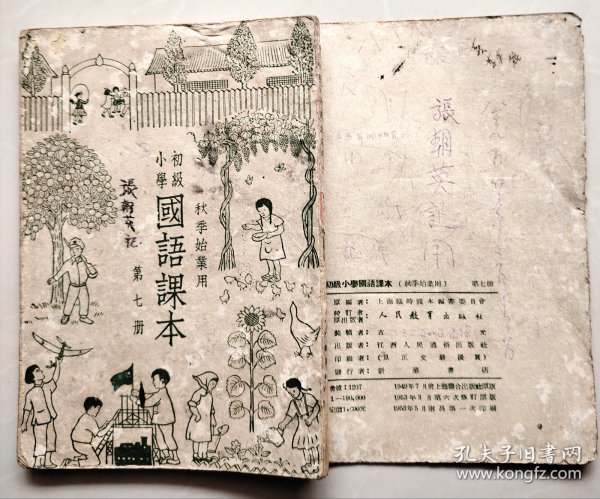 初級
小學
國語課本
秋季始業用
第七册
張朝英記
張朝英記用
初級小學國語課本（秋季始業用） 第七册
原編者：上海臨時課本編審委員會
修訂者：
原出版者：人民教育出版社
裝幀者：古 元
出版者：江西人民通俗出版社
印刷者：（見正文最後頁）
發行者：新華書店
書號：1207 1949年7月前上海聯合出版社原版
1—190,000 1953年3月第六次修訂原版
1953年5月南昌第一次印刷
孔夫子旧书网
www.kongfz.com